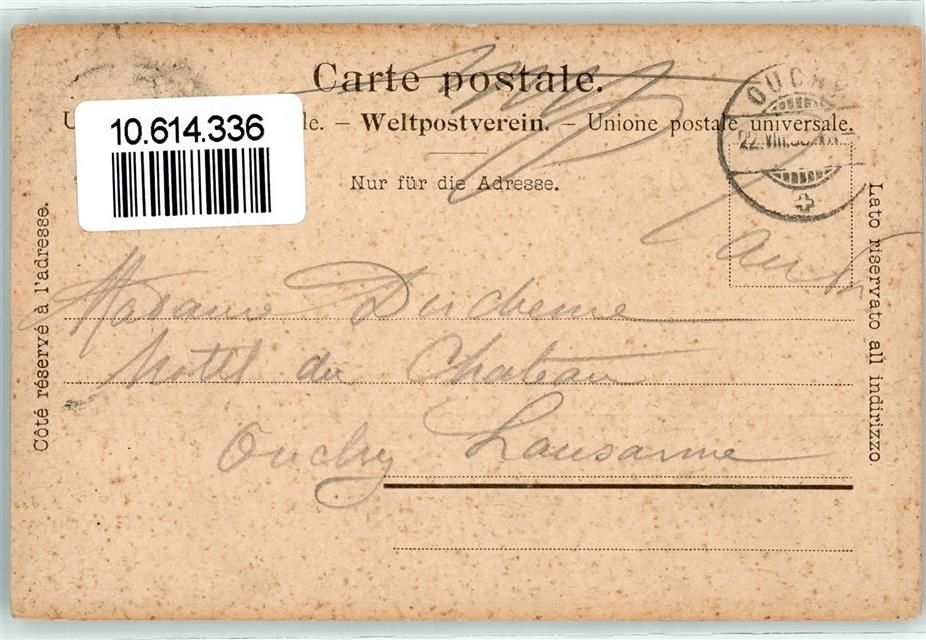 Carte postale.
le. – Weltpostverein. – Unione postale universale.
Nur für die Adresse.
10.614.336
OUCHY
22.VIII.
Côté réservé à l'adresse.
Lato riservato all indirizzo.
Madame Duchenne
Hotel du Chateau
Ouchy Lausanne